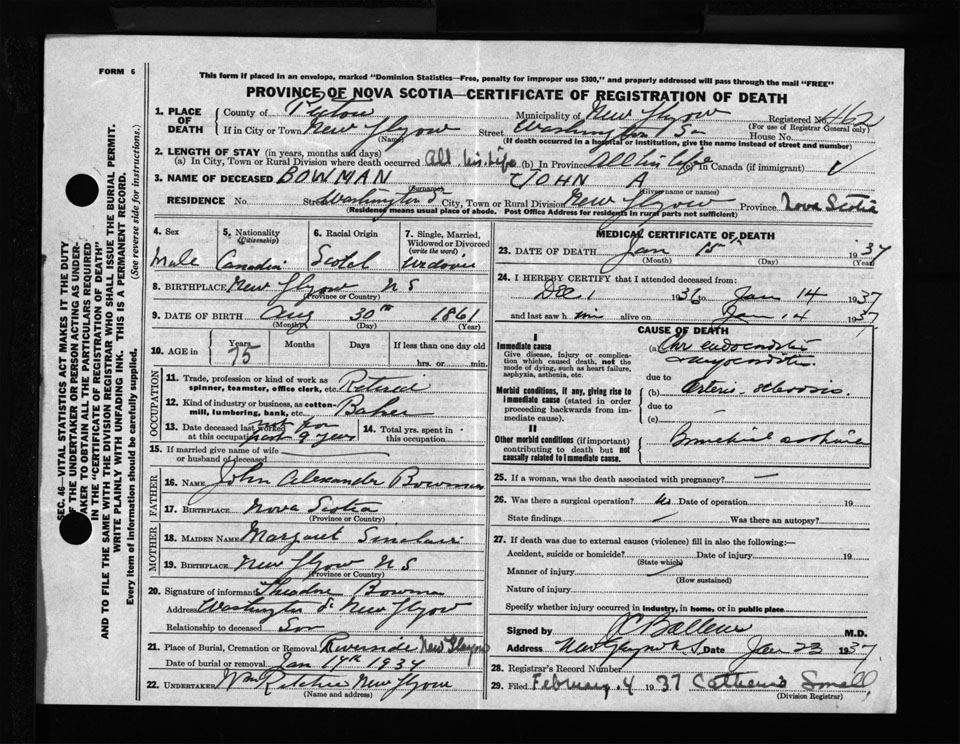 FORM 6
This form if placed in an envelope, marked "Dominion Statistics—Free, penalty for improper use $300," and properly addressed will pass through the mail "FREE"
PROVINCE OF NOVA SCOTIA—CERTIFICATE OF REGISTRATION OF DEATH
SEC. 46—VITAL STATISTICS ACT MAKES IT THE DUTY
OF THE UNDERTAKER OR PERSON ACTING AS UNDER-
TAKER TO OBTAIN ALL THE PARTICULARS REQUIRED
IN THE "CERTIFICATE OF REGISTRATION OF DEATH"
AND TO FILE THE SAME WITH THE DIVISION REGISTRAR WHO SHALL ISSUE THE BURIAL PERMIT.
WRITE PLAINLY WITH UNFADING INK. THIS IS A PERMANENT RECORD.
Every item of information should be carefully supplied.
(See reverse side for instructions.)
1. PLACE OF DEATH County of Pictou Municipality of New Glasgow Registered No. 462
(For use of Registrar General only)
If in City or Town New Glasgow (Name) Street Washington St House No.
(If death occurred in a hospital or institution, give the name instead of street and number)
2. LENGTH OF STAY (in years, months and days)
(a) In City, Town or Rural Division where death occurred All his life (b) In Province All his life (c) In Canada (if immigrant)
3. NAME OF DECEASED BOWMAN (Surname) JOHN A (Given name or names)
RESIDENCE No. Street Washington St City, Town or Rural Division New Glasgow Province Nova Scotia
(Residence means usual place of abode. Post Office Address for residents in rural parts not sufficient)
4. Sex Male
5. Nationality (Citizenship) Canadian
6. Racial Origin Scotch
7. Single, Married, Widowed or Divorced (write the word)
8. BIRTHPLACE New Glasgow N S
(Province or Country)
9. DATE OF BIRTH Aug 30th 1861
(Month) (Day) (Year)
10. AGE in Years 75 Months Days If less than one day old
hrs. or min.
OCCUPATION
11. Trade, profession or kind of work as spinner, teamster, office clerk, etc. Retired
12. Kind of industry or business, as cotton-mill, lumbering, bank, etc. Baker
13. Date deceased last worked at this occupation last 9 years
14. Total yrs. spent in this occupation
15. If married give name of wife or husband of deceased
FATHER
16. NAME John Alexander Bowman
17. BIRTHPLACE Nova Scotia
(Province or Country)
MOTHER
18. MAIDEN NAME Margaret Sinclair
19. BIRTHPLACE New Glasgow N S
(Province or Country)
20. Signature of informant Theadore Bowman
Address Washington St New Glasgow
Relationship to deceased Son
21. Place of Burial, Cremation or Removal Riverside New Glasgow
Date of burial or removal Jan 17th 1937
22. UNDERTAKER Wm Ritchie New Glasgow
(Name and address)
MEDICAL CERTIFICATE OF DEATH
23. DATE OF DEATH Jan 15th 1937
(Month) (Day) (Year)
24. I HEREBY CERTIFY that I attended deceased from:
Dec 1 1936 to Jan 14 1937
and last saw him alive on Jan 14 1937
CAUSE OF DEATH
I
Immediate cause
Give disease, injury or complication which caused death, not the mode of dying, such as heart failure, asphyxia, asthenia, etc.
(a) Chr endocarditis
myocarditis
due to
Morbid conditions, if any, giving rise to immediate cause (stated in order proceeding backwards from immediate cause).
(b) Arterio sclerosis
due to
(c)
II
Other morbid conditions (if important) contributing to death but not causally related to immediate cause.
Bronchial asthma
25. If a woman, was the death associated with pregnancy?
26. Was there a surgical operation? No Date of operation 19
State findings Was there an autopsy?
27. If death was due to external causes (violence) fill in also the following:—
Accident, suicide or homicide? Date of injury 19
(State which)
Manner of injury
(How sustained)
Nature of injury
Specify whether injury occurred in industry, in home, or in public place
Signed by M.D.
Address New Glasgow N.S. Date Jan 23 1937
28. Registrar's Record Number
29. Filed February 4 1937 Catherine Small
(Division Registrar)